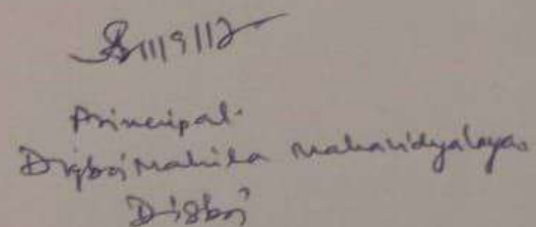 11/9/12
Principal.
Digboi Mahila Mahavidyalaya.
Digboi